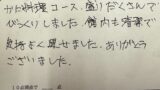 かに料理コース、盛りだくさんで
びっくりしました。館内も清潔で
気持よく過せました。ありがとう
ございました。